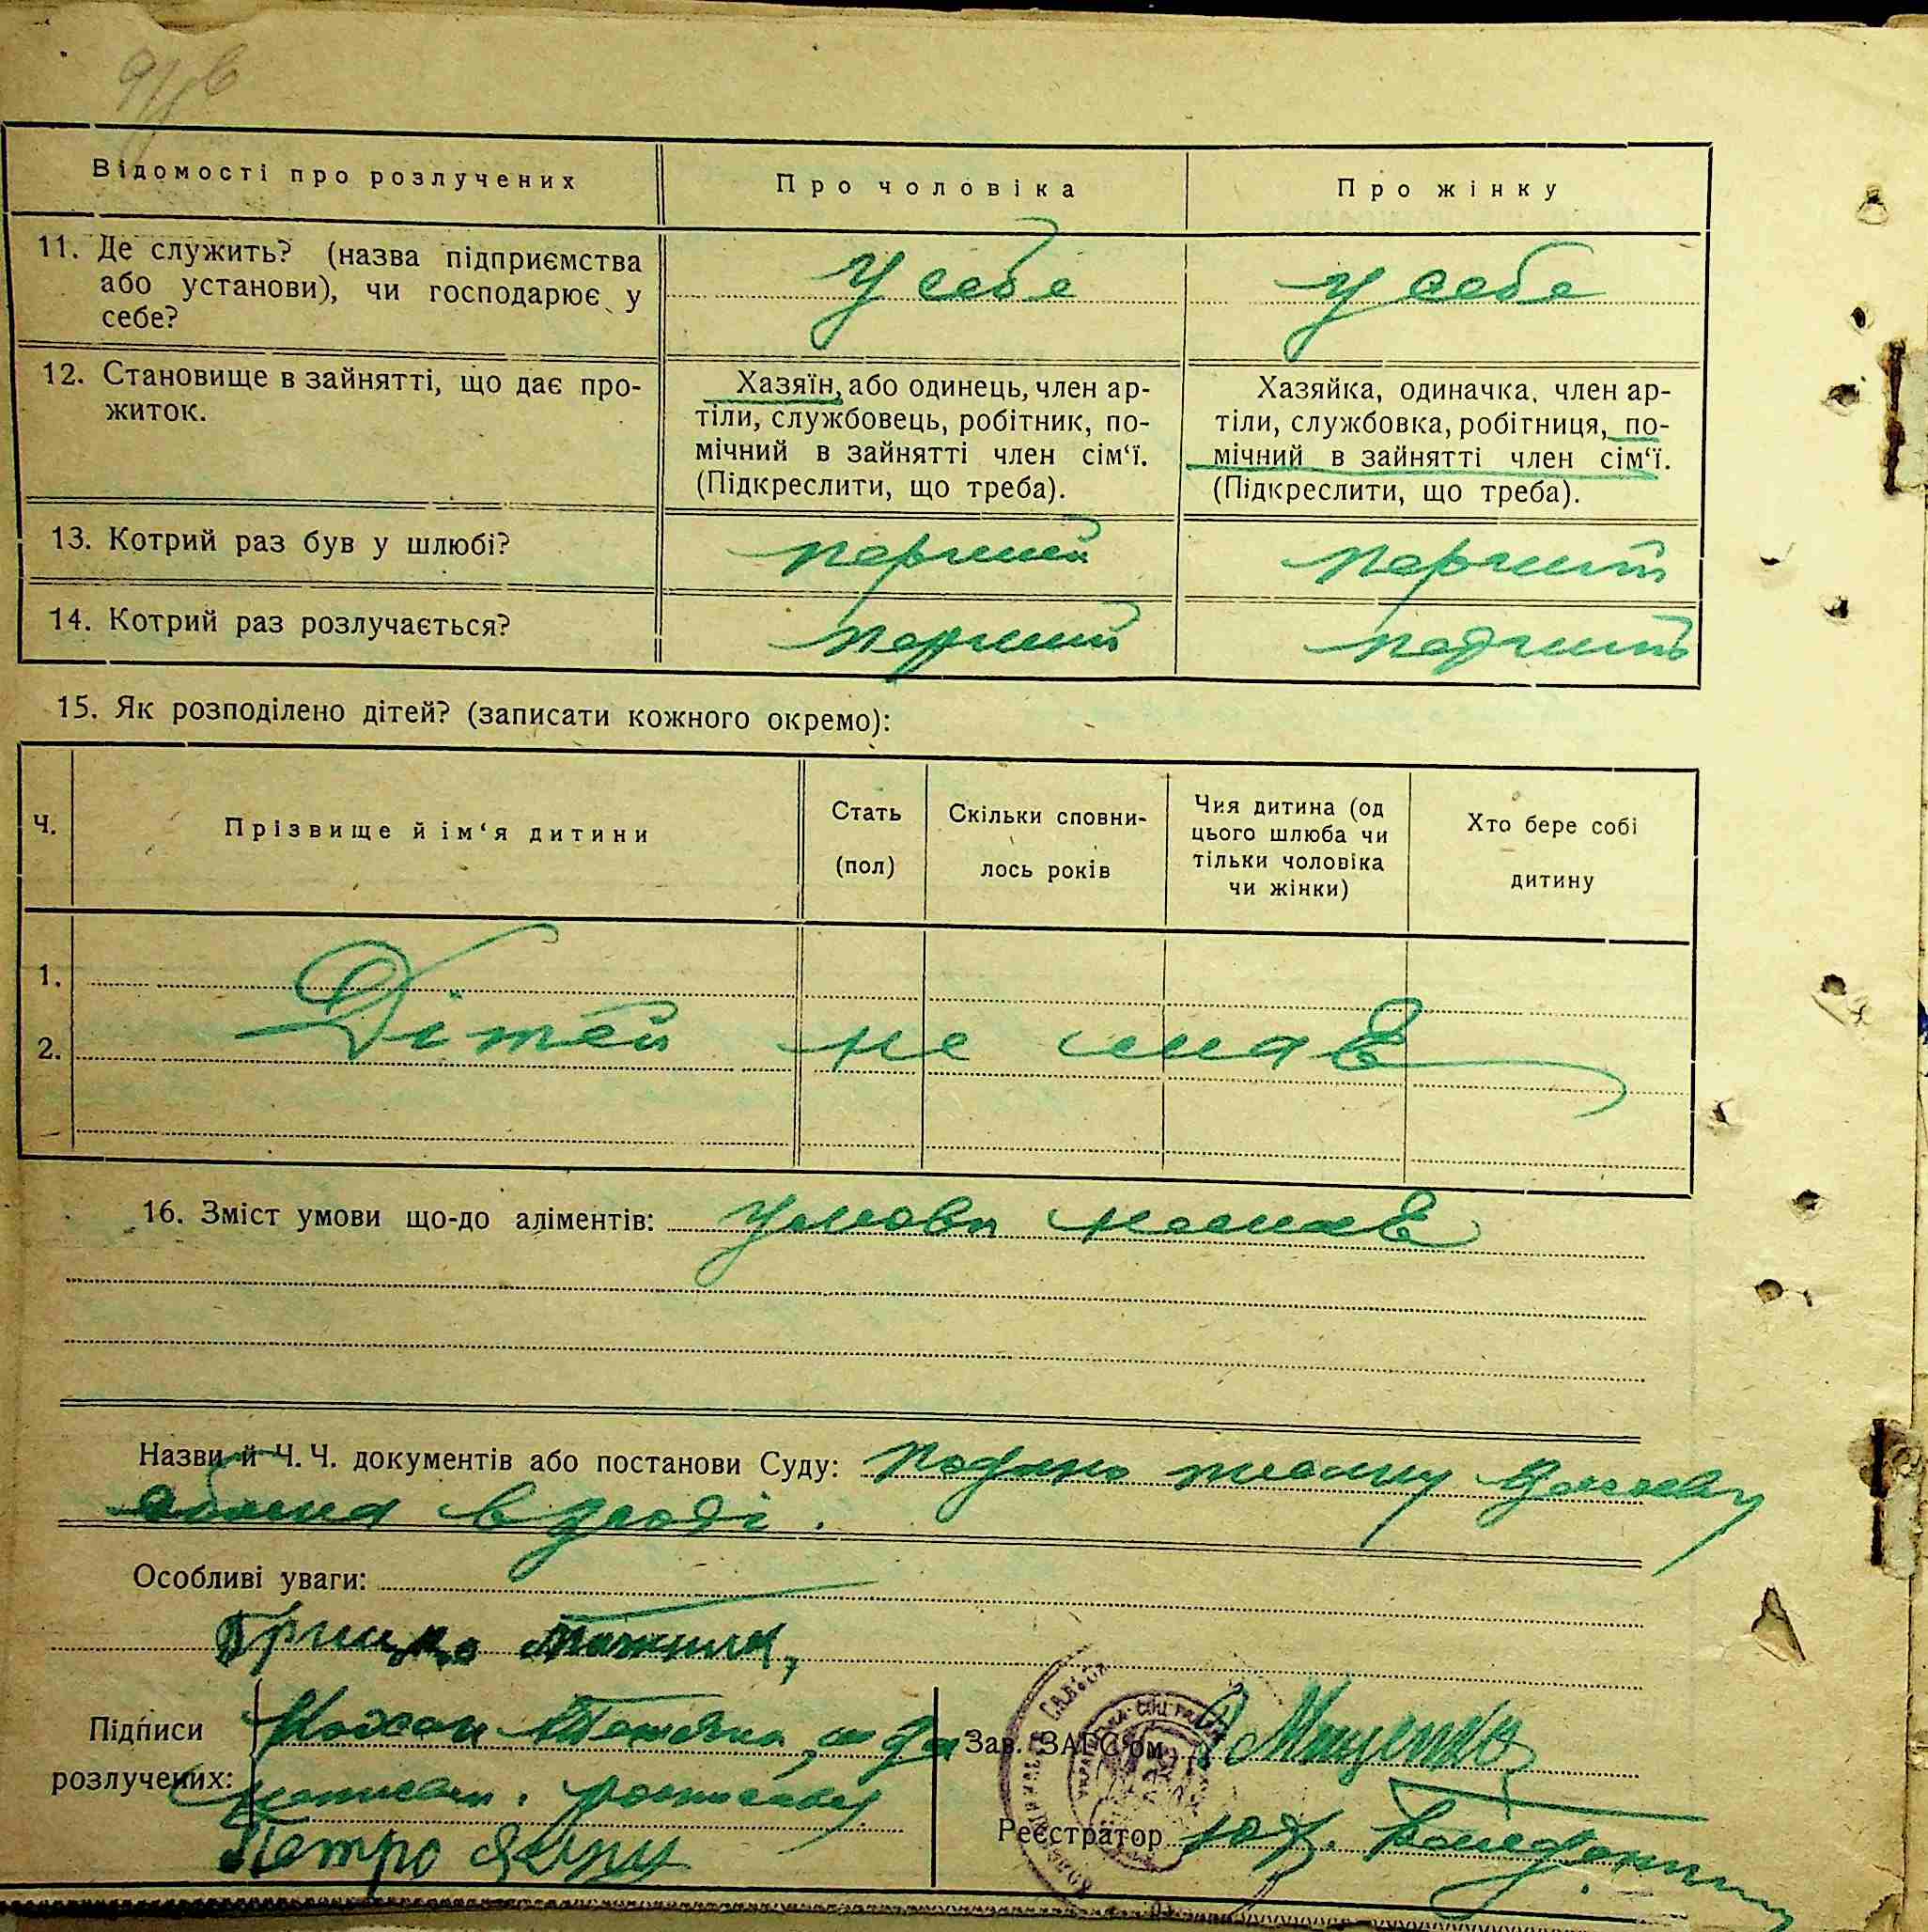 Відомості про розлучених
Про чоловіка
Про жінку
11. Де служить? (назва підприємства
або установи), чи господарює у
себе?
У себе
У себе
12. Становище в зайнятті, що дає про-
житок.
Хазяїн, або одинець, член ар-
тіли, службовець, робітник, по-
мічний в зайнятті член сім‘ї.
(Підкреслити, що треба).
Хазяйка, одиначка, член ар-
тіли, службовка, робітниця, по-
мічний в зайнятті член сім‘ї.
(Підкреслити, що треба).
13. Котрий раз був у шлюбі?
перший
перший
14. Котрий раз розлучається?
перший
перший
15. Як розподілено дітей? (записати кожного окремо):
Ч.
Прізвище й ім‘я дитини
Стать
(пол)
Скільки сповни-
лось років
Чия дитина (од
цього шлюба чи
тільки чоловіка
чи жінки)
Хто бере собі
дитину
1.
2.
Дітей не має
16. Зміст умови що-до аліментів: Умови немає
Назви й Ч. Ч. документів або постанови Суду: Подано
Особливі уваги:
Грицько
Підписи
розлучених:
Петро
Зав. ЗАГС‘ом
Реєстратор